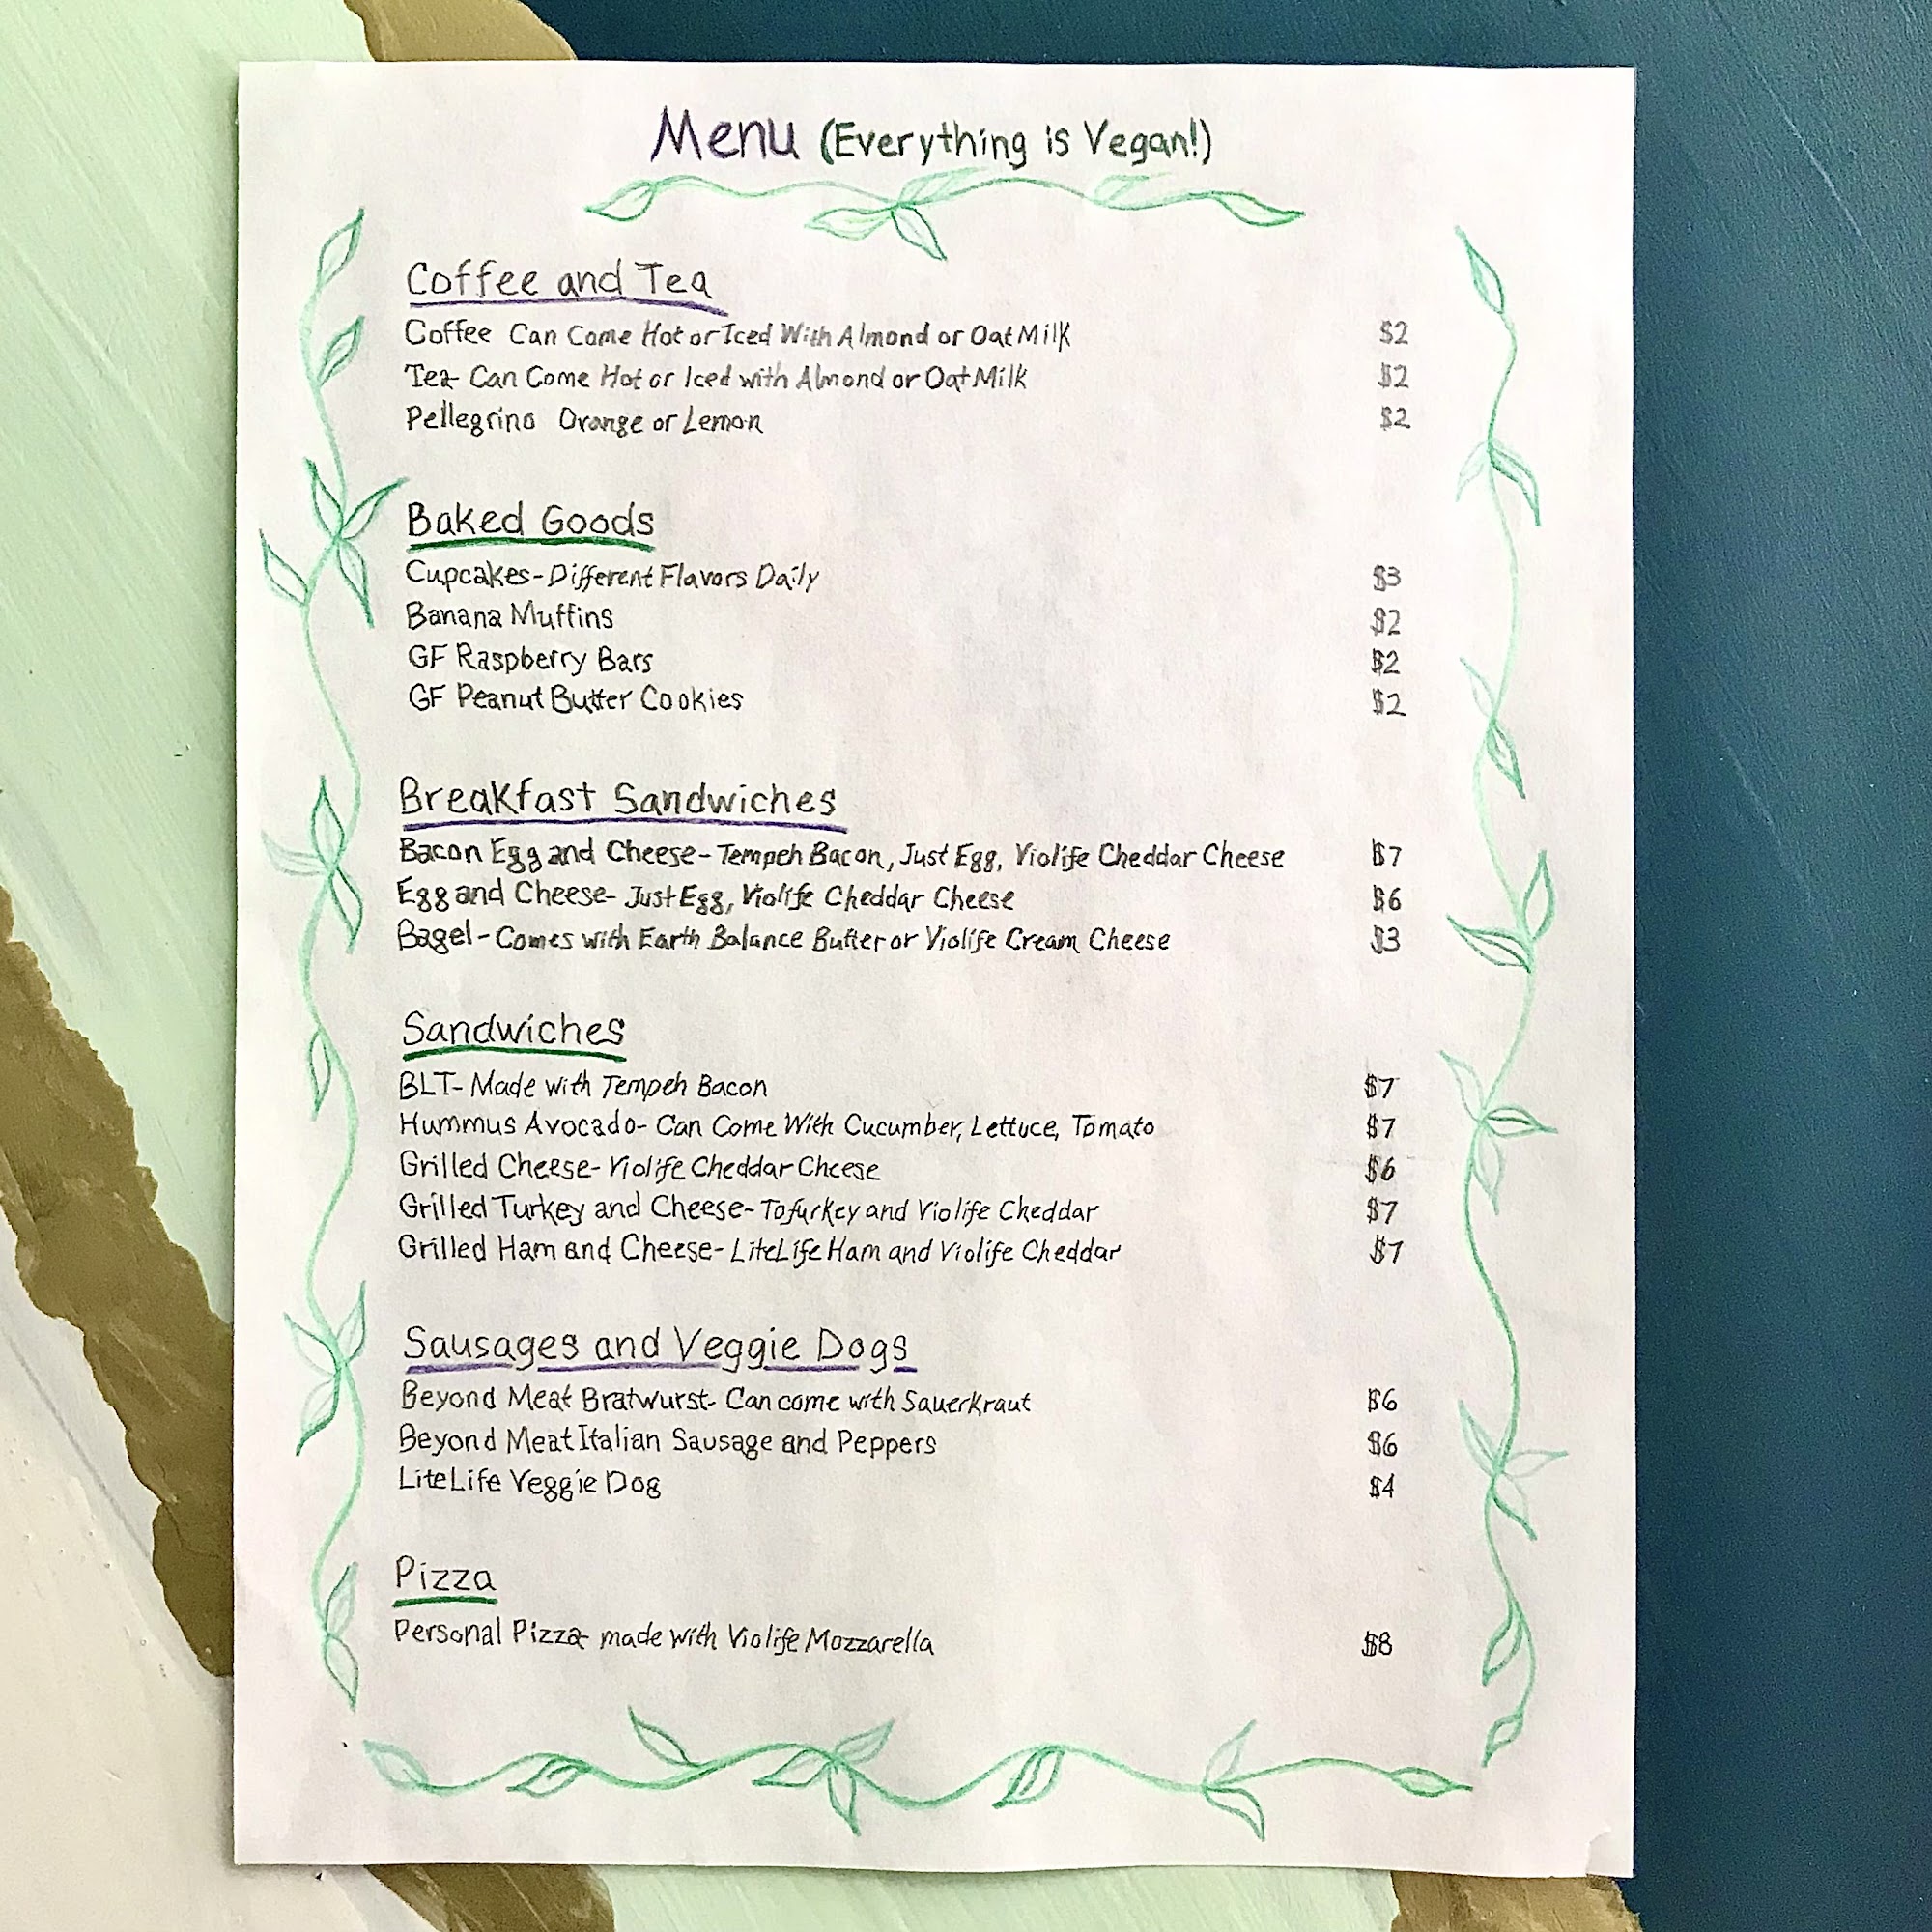 Menu (Everything is Vegan!)
Coffee and Tea
Coffee Can Come Hot or Iced With Almond or Oat Milk $2
Tea- Can Come Hot or Iced with Almond or Oat Milk $2
Pellegrino Orange or Lemon $2
Baked Goods
Cupcakes-Different Flavors Daily $3
Banana Muffins $2
GF Raspberry Bars $2
GF Peanut Butter Cookies $2
Breakfast Sandwiches
Bacon Egg and Cheese-Tempeh Bacon, Just Egg, Violife Cheddar Cheese $7
Egg and Cheese- Just Egg, Violife Cheddar Cheese $6
Bagel-Comes with Earth Balance Butter or Violife Cream Cheese $3
Sandwiches
BLT- Made with Tempeh Bacon $7
Hummus Avocado- Can Come With Cucumber, Lettuce, Tomato $7
Grilled Cheese- Violife Cheddar Cheese $6
Grilled Turkey and Cheese-Tofurkey and Violife Cheddar $7
Grilled Ham and Cheese- LiteLife Ham and Violife Cheddar $7
Sausages and Veggie Dogs
Beyond Meat Bratwurst- Can come with Sauerkraut $6
Beyond Meat Italian Sausage and Peppers $6
LiteLife Veggie Dog $4
Pizza
Personal Pizza- made with Violife Mozzarella $8